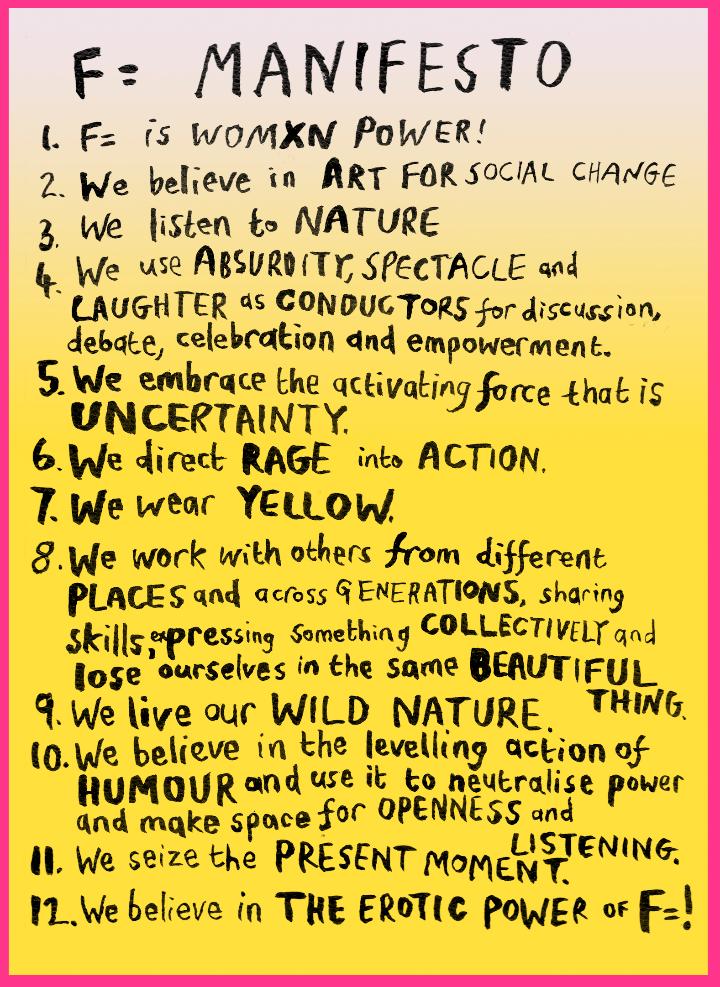 F= MANIFESTO
1. F= is WOMXN POWER!
2. We believe in ART FOR SOCIAL CHANGE
3. We listen to NATURE
4. We use ABSURDITY, SPECTACLE and
LAUGHTER as CONDUCTORS for discussion,
debate, celebration and empowerment.
5. We embrace the activating force that is
UNCERTAINTY.
6. We direct RAGE into ACTION.
7. We wear YELLOW.
8. We work with others from different
PLACES and across GENERATIONS, sharing
skills, expressing something COLLECTIVELY and
lose ourselves in the same BEAUTIFUL
THING.
9. We live our WILD NATURE.
10. We believe in the levelling action of
HUMOUR and use it to neutralise power
and make space for OPENNESS and
LISTENING.
11. We seize the PRESENT MOMENT.
12. We believe in THE EROTIC POWER OF F=!